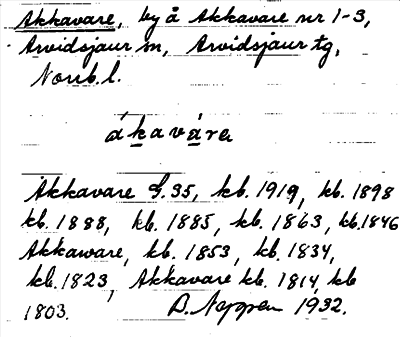 Akkavare, by å Akkavare nr 1-3,
Arvidsjaur sn, Arvidsjaur tg,
Norrb. l.
ákavàrɐ
Akkavare G. 35, kb. 1919, kb. 1898
kb. 1888, kb. 1885, kb. 1863, kb. 1846
Akkaware, kb. 1853, kb. 1834,
kb. 1823, Akkavare kb. 1814, kb
1803. 1932.